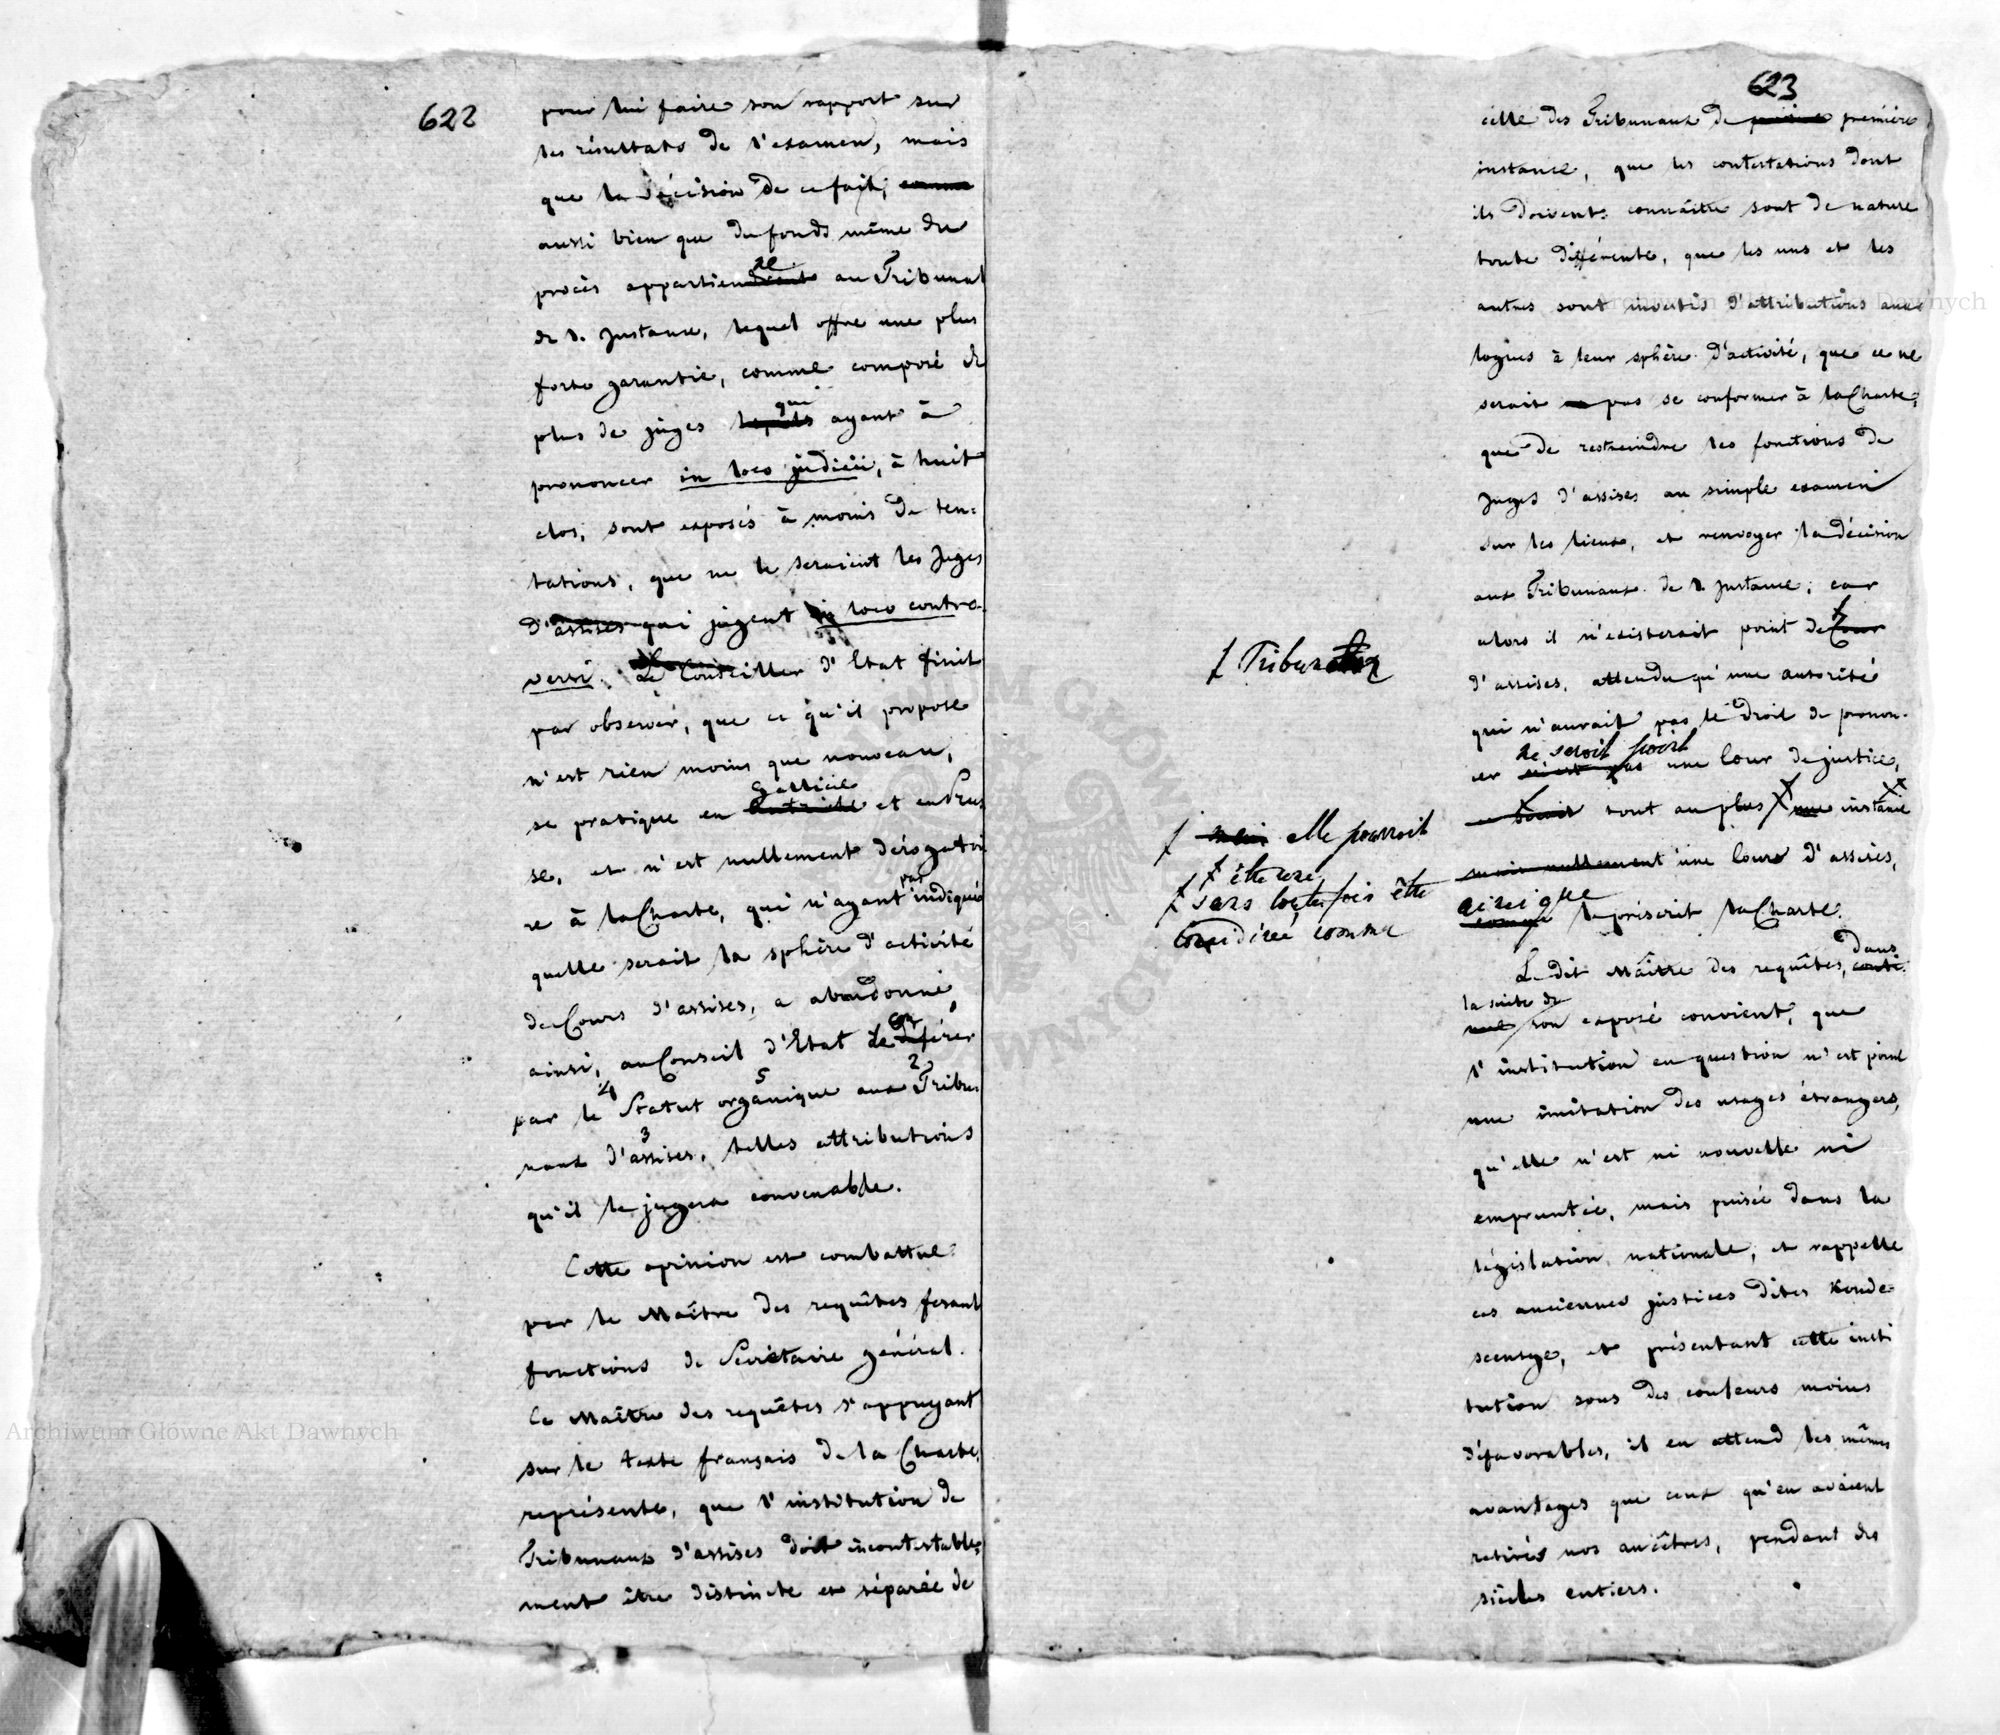 622
pour lui faire son rapport sur
les résultats de l'examen, mais
que la décision de ce fait, comme
aussi bien que du fonds même du
procès appartienne au Tribunal
de 1. Instance, lequel offre une plus
forte garantie, comme composé de
plus de juges qui ayant à
prononcer in loco judicii, à huit
clos, sont exposés à moins de ten-
tations, que ne le seraient les Juges
d'assises qui jugent in loco contro-
versi. Le Conseiller d'Etat finit
par observer, que ce qu'il propose
n'est rien moins que nouveau,
se pratique en Gallicie et en Prus
se, et n'est nullement dérogatoi
re à la Charte, qui n'ayant pas indiqué
quelle serait la sphère d'activité
de Cours d'assises, a abandonné
ainsi, au Conseil d'Etat de conférer
par le 4 Statut organique 5 aux 2 Tribu-
naux d'assises 3, telles attributions
qu'il le jugera convenable.
Cette opinion est combattue
par le Maître des requêtes fesant
fonctions de Secrétaire général.
Ce Maître des requêtes s'appuyant
sur le texte français de la Charte,
représente, que l'institution de
Tribunaux d'assises doit incontestable-
ment être distincte et séparée de
623
celle des Tribunaux de première
instance, que les contestations dont
ils doivent connaître sont de nature
toute différente, que les uns et les
autres sont investis d'attributions ana
logues à leur sphère d'activité, que ce ne
serait pas se conformer à la Charte,
que de restreindre les fonctions de
Juges d'assises au simple examen
sur les lieux, et renvoyer la décision
aux Tribunaux de 1. Instance; car
alors il n'existerait point de Cour
d'assises, attendu qu'une autorité
qui n'aurait pas le droit de pronon-
cer ne seroit point une Cour de justice,
tout au plus une instance
nullement une Cour d'assises,
ainsi que le prescrit la Charte.
Le dit Maître des requêtes, dans
la suite de son exposé convient, que
l'institution en question n'est point
une imitation des usages étrangers,
qu'elle n'est ni nouvelle ni
empruntée, mais puisée dans la
législation nationale, et rappelle
ces anciennes justices dites Konde-
scensye, et présentant cette insti
tution sous des couleurs moins
défavorables, il en attend les mêmes
avantages que ceux qu'en avaient
retirés nos ancêtres, pendant des
siècles entiers.
Tribunaux
elle pourroit
être une
sans toutefois être
considérée comme
Archiwum Główne Akt Dawnych
Archiwum Główne Akt Dawnych